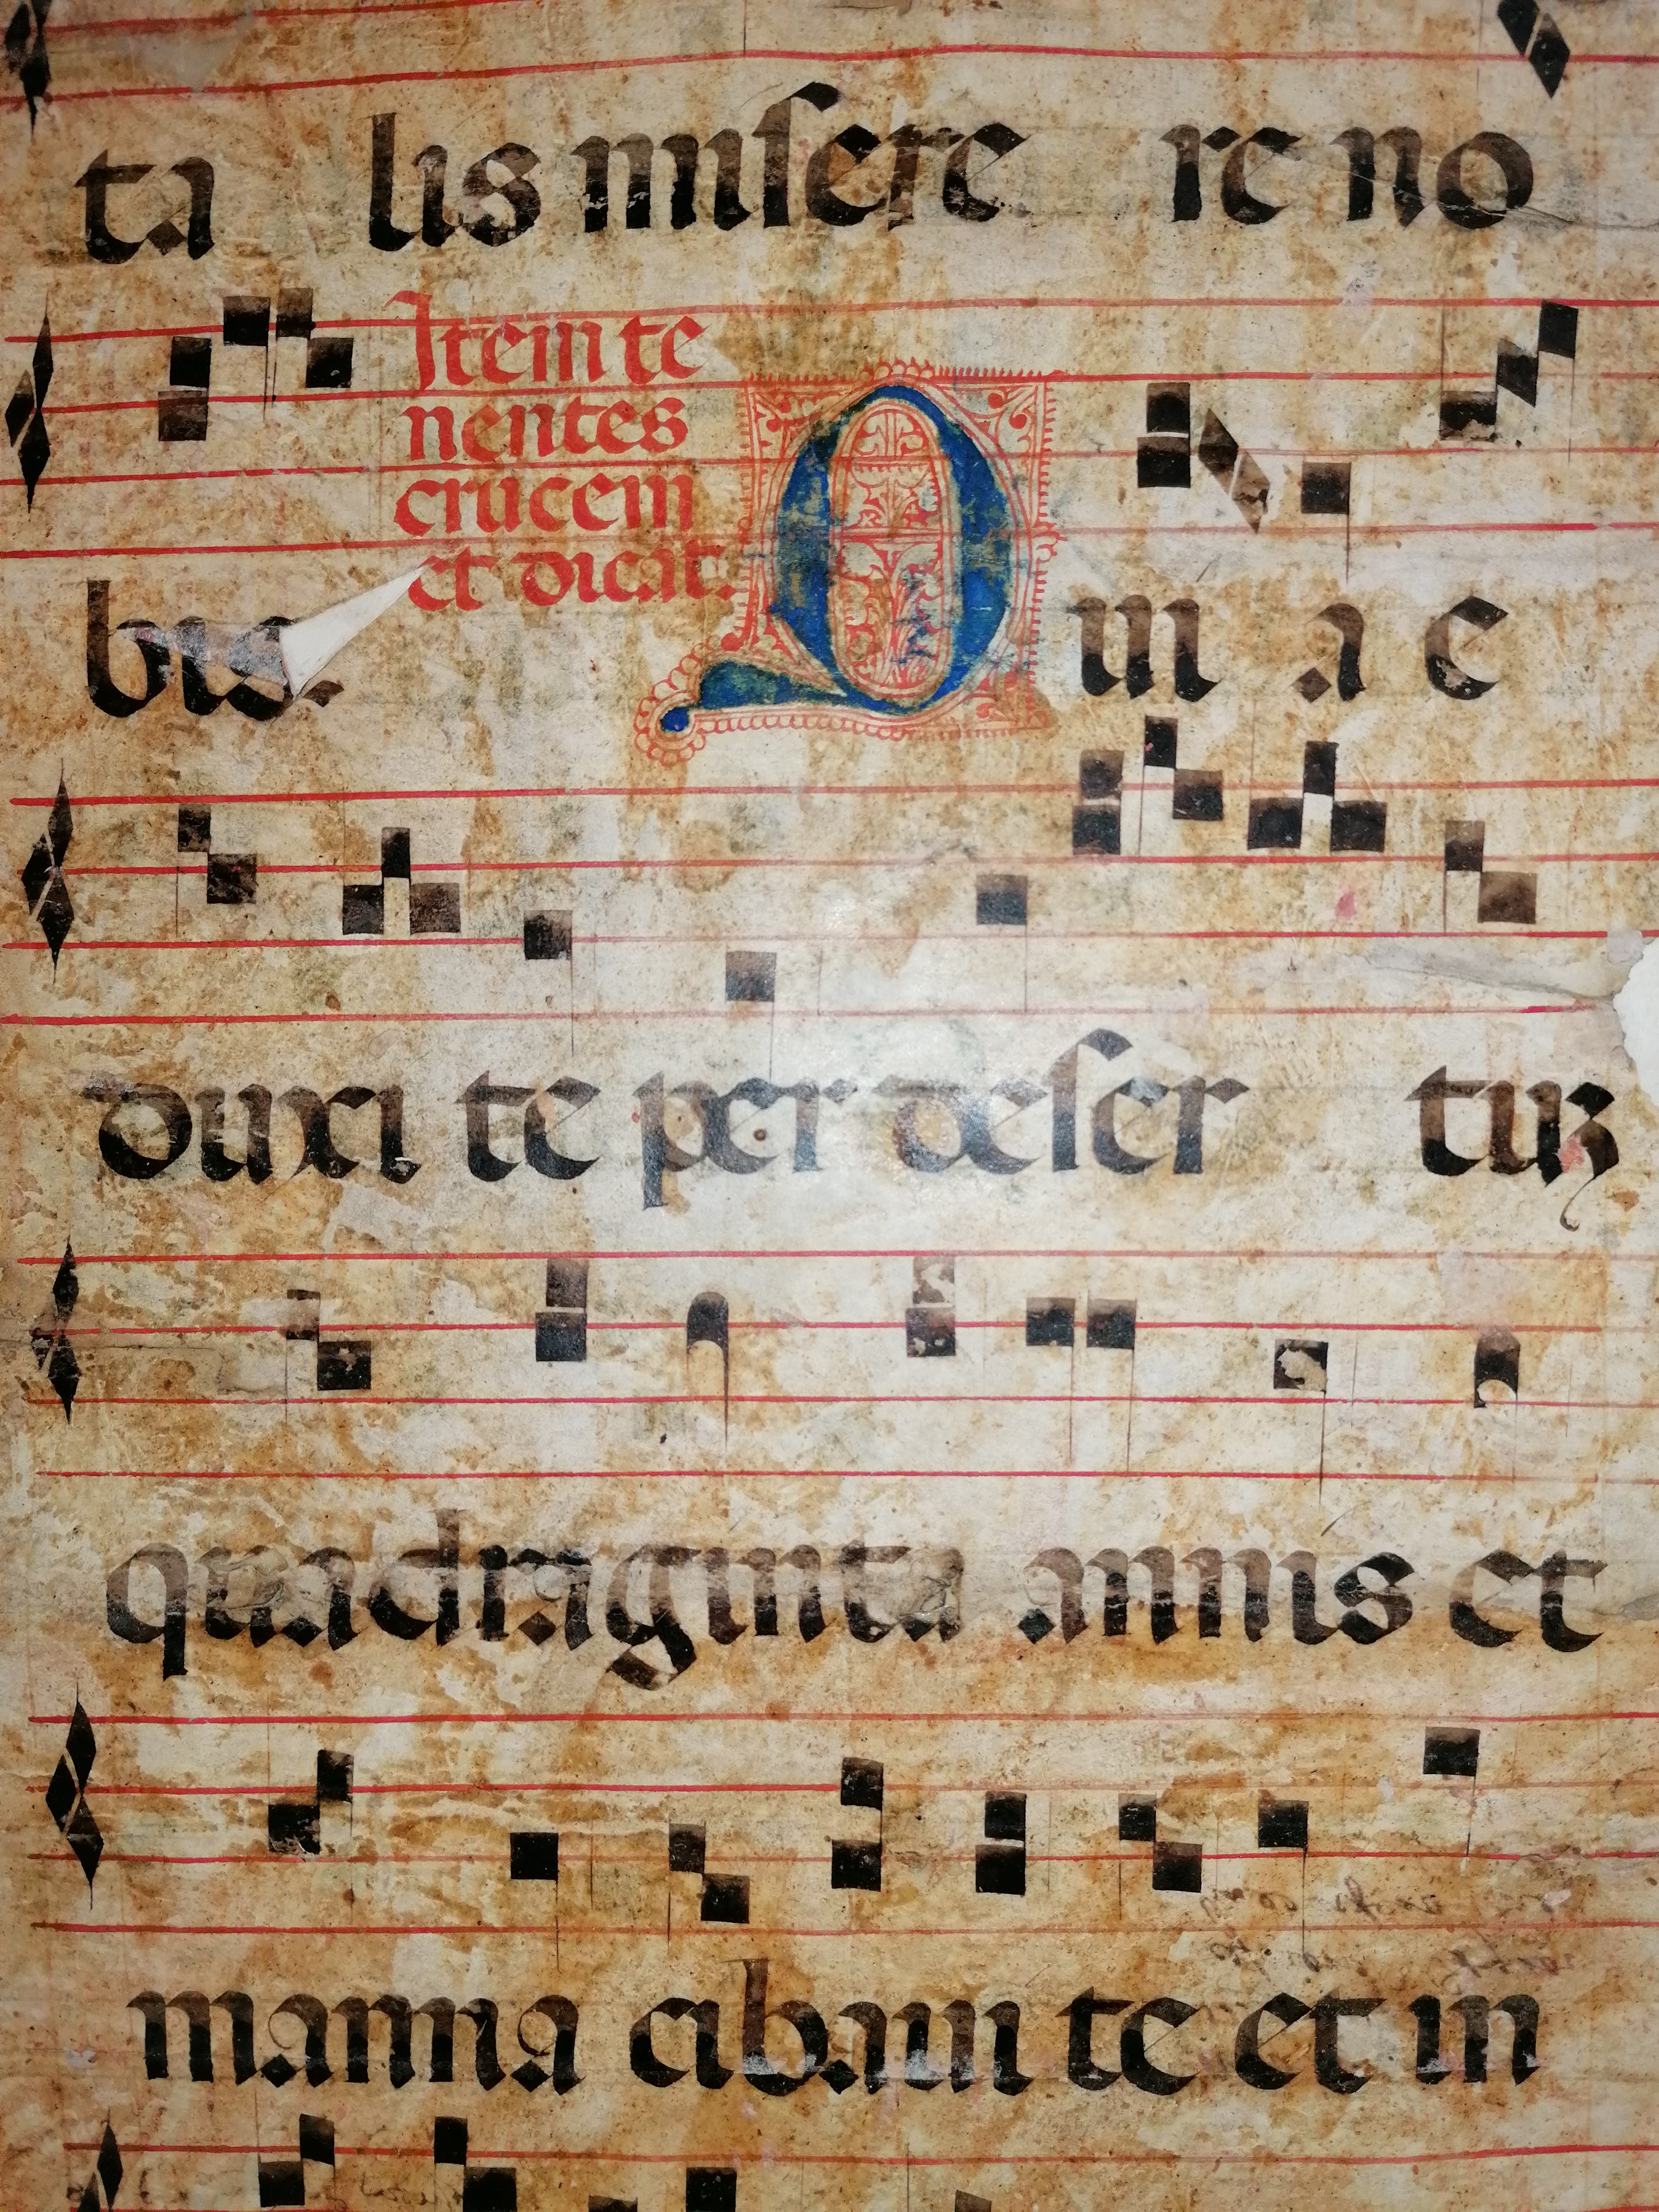 ta lis misere re no
Item te
nentes
crucem
et dicat.
bis. Quia e
duxi te per deser tuz
quadraginta annis et
manna cibaui te et in